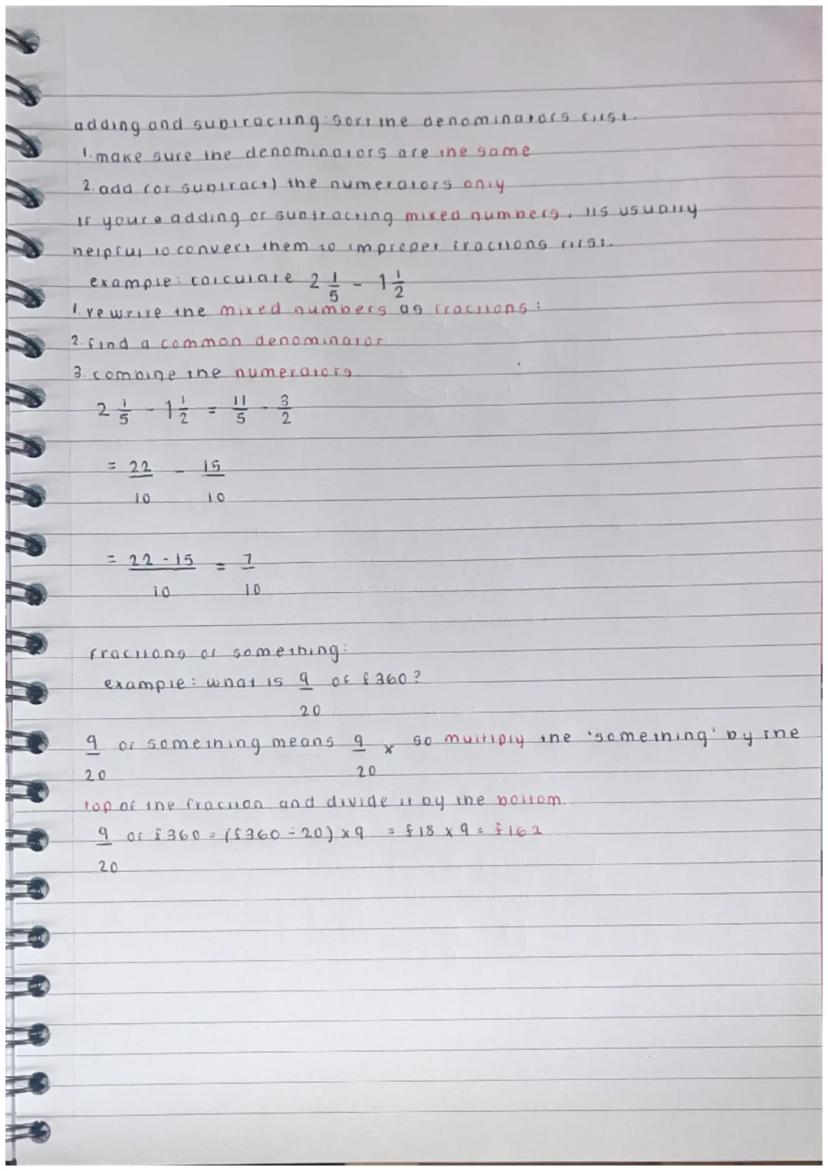 adding and subtracting: sort the denominators first.
1. make sure the denominators are the same
2. add (or subtract) the numerators only
If youre adding or subtracting mixed numbers, its usually
helpful to convert them to improper fractions first.
example: calculate 2 1/5 - 1 1/2
1. rewrite the mixed numbers as fractions:
2. find a common denominator
3. combine the numerators
2 1/5 - 1 1/2 = 11/5 - 3/2
= 22/10 - 15/10
= 22 - 15/10 = 7/10
fractions of something:
example: what is 9/20 of £360?
9/20 of something means 9/20 x so multiply the 'something' by the
top of the fraction and divide it by the bottom.
9/20 of £360 = (£360 ÷ 20) x 9 = £18 x 9 = £162